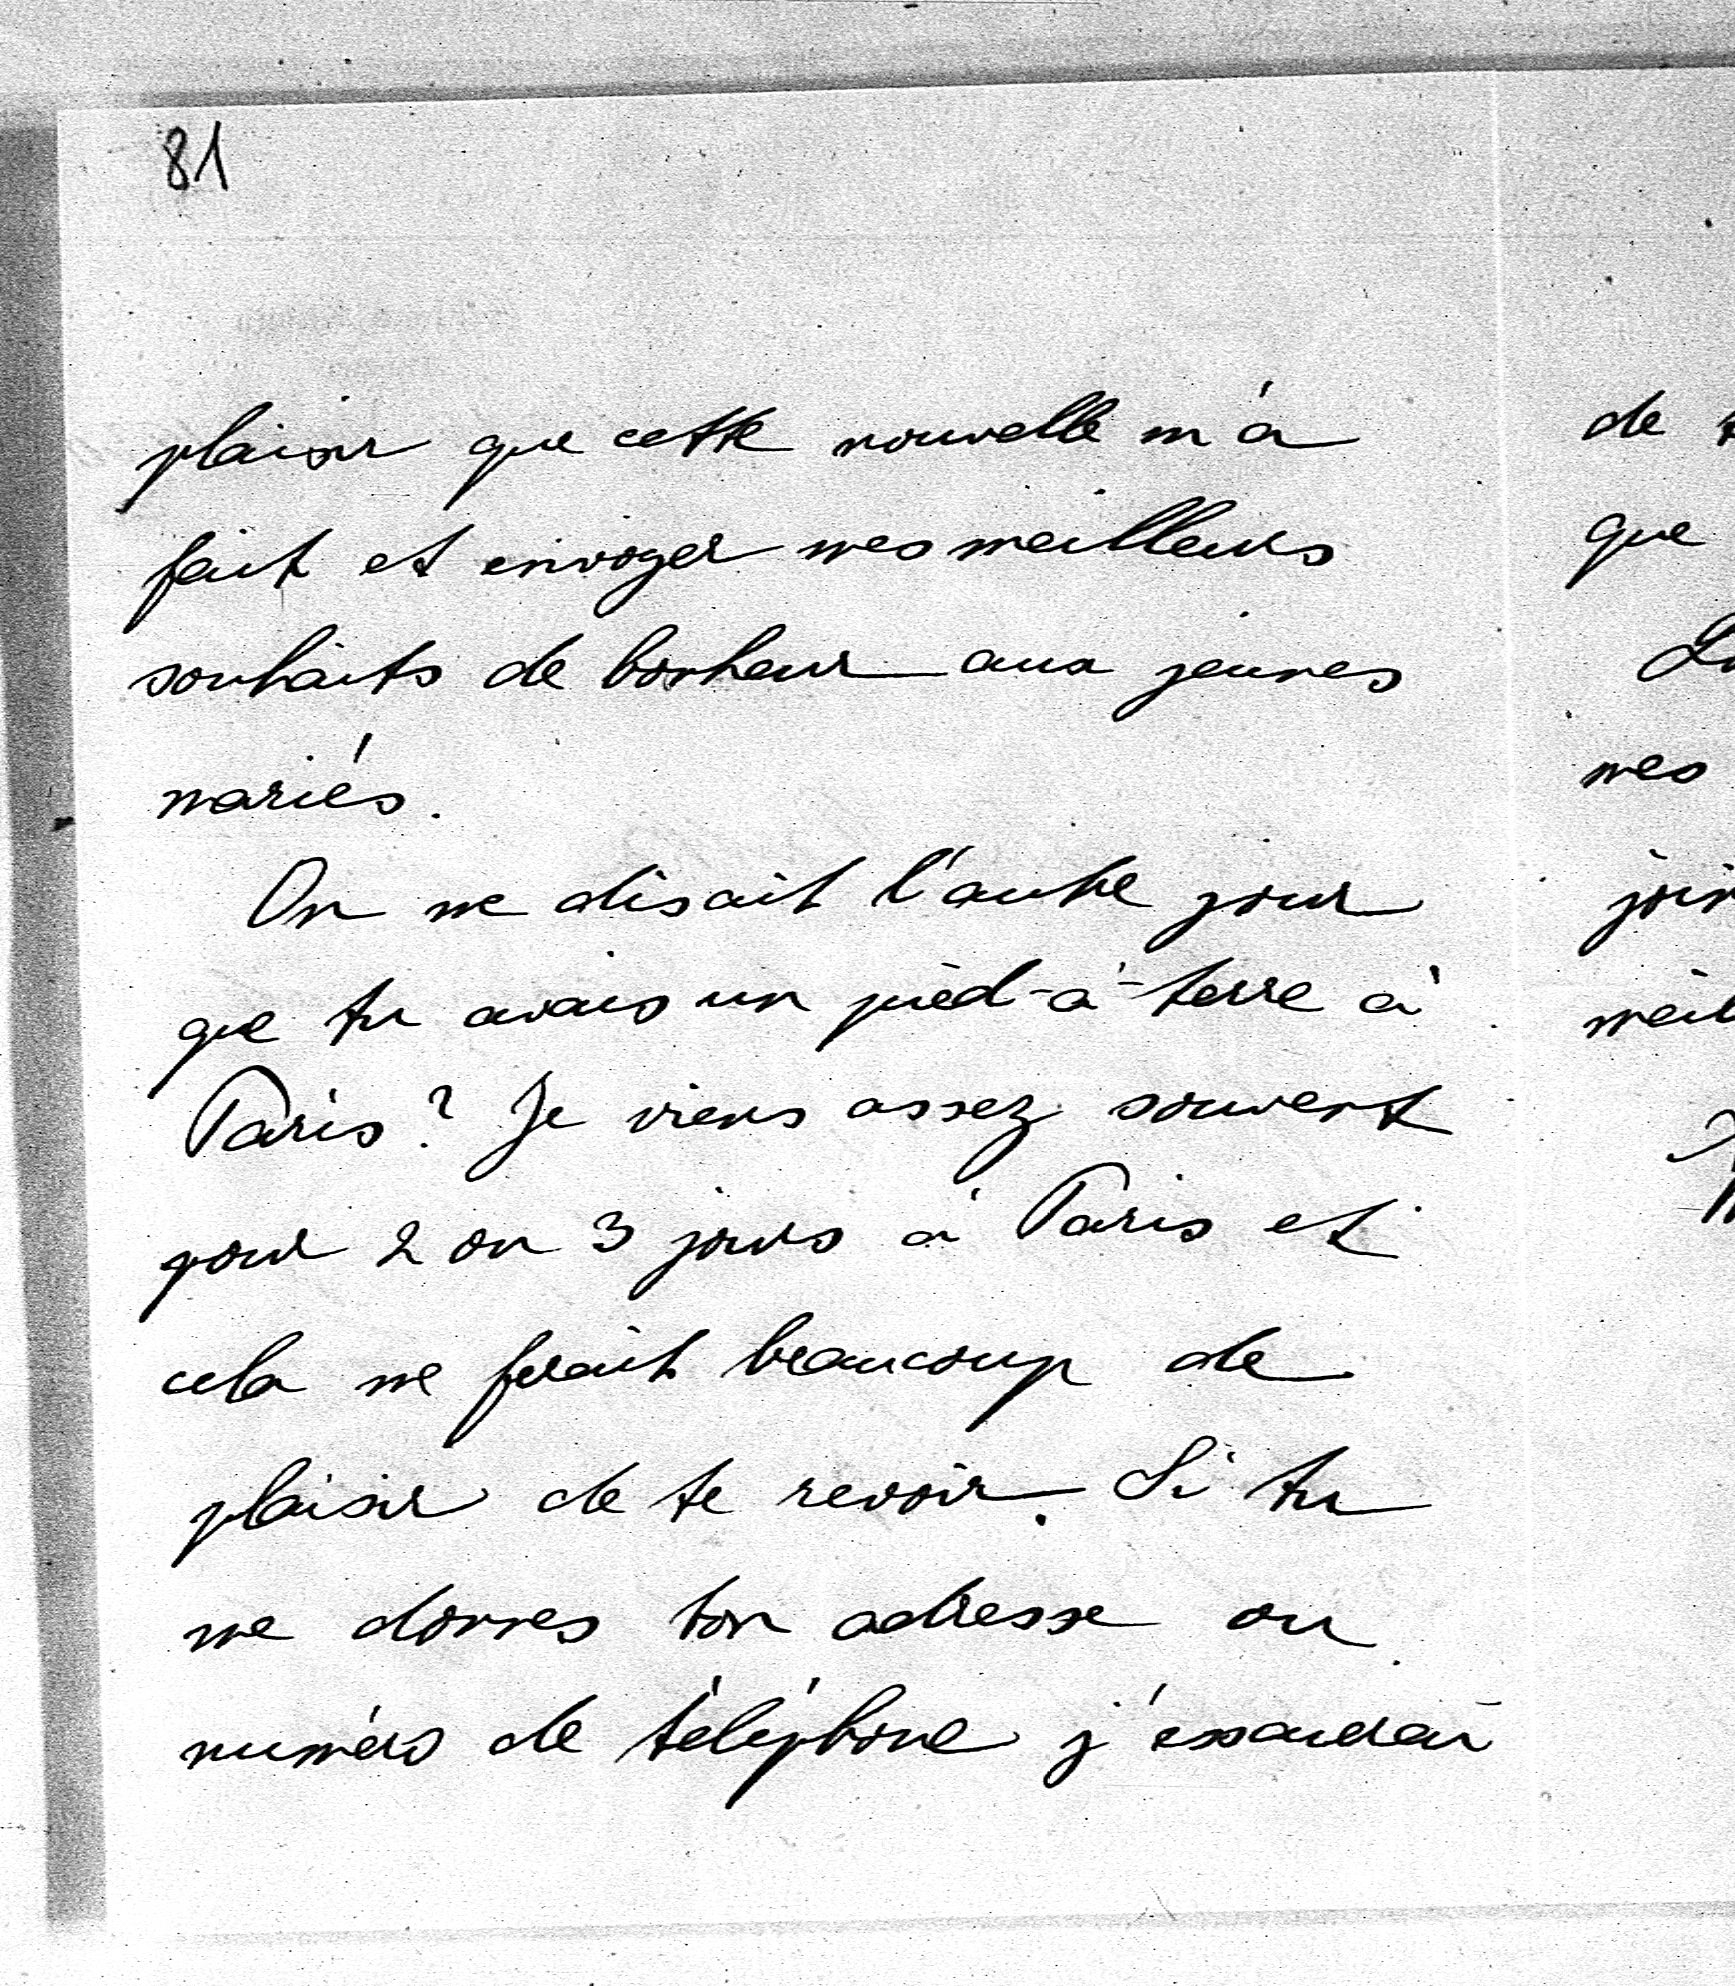 81
plaisir que cette nouvelle m'a
fait et envoyer mes meilleurs
souhaits de bonheur aux jeunes
mariés.
On me disait l'autre jour
que tu avais un pied-à-terre à
Paris ? Je viens assez souvent
pour 2 ou 3 jours à Paris et
cela me ferait beaucoup de
plaisir de te revoir. Si tu
me donnes ton adresse ou
numéro de téléphone j'essaierai
de
que
mes